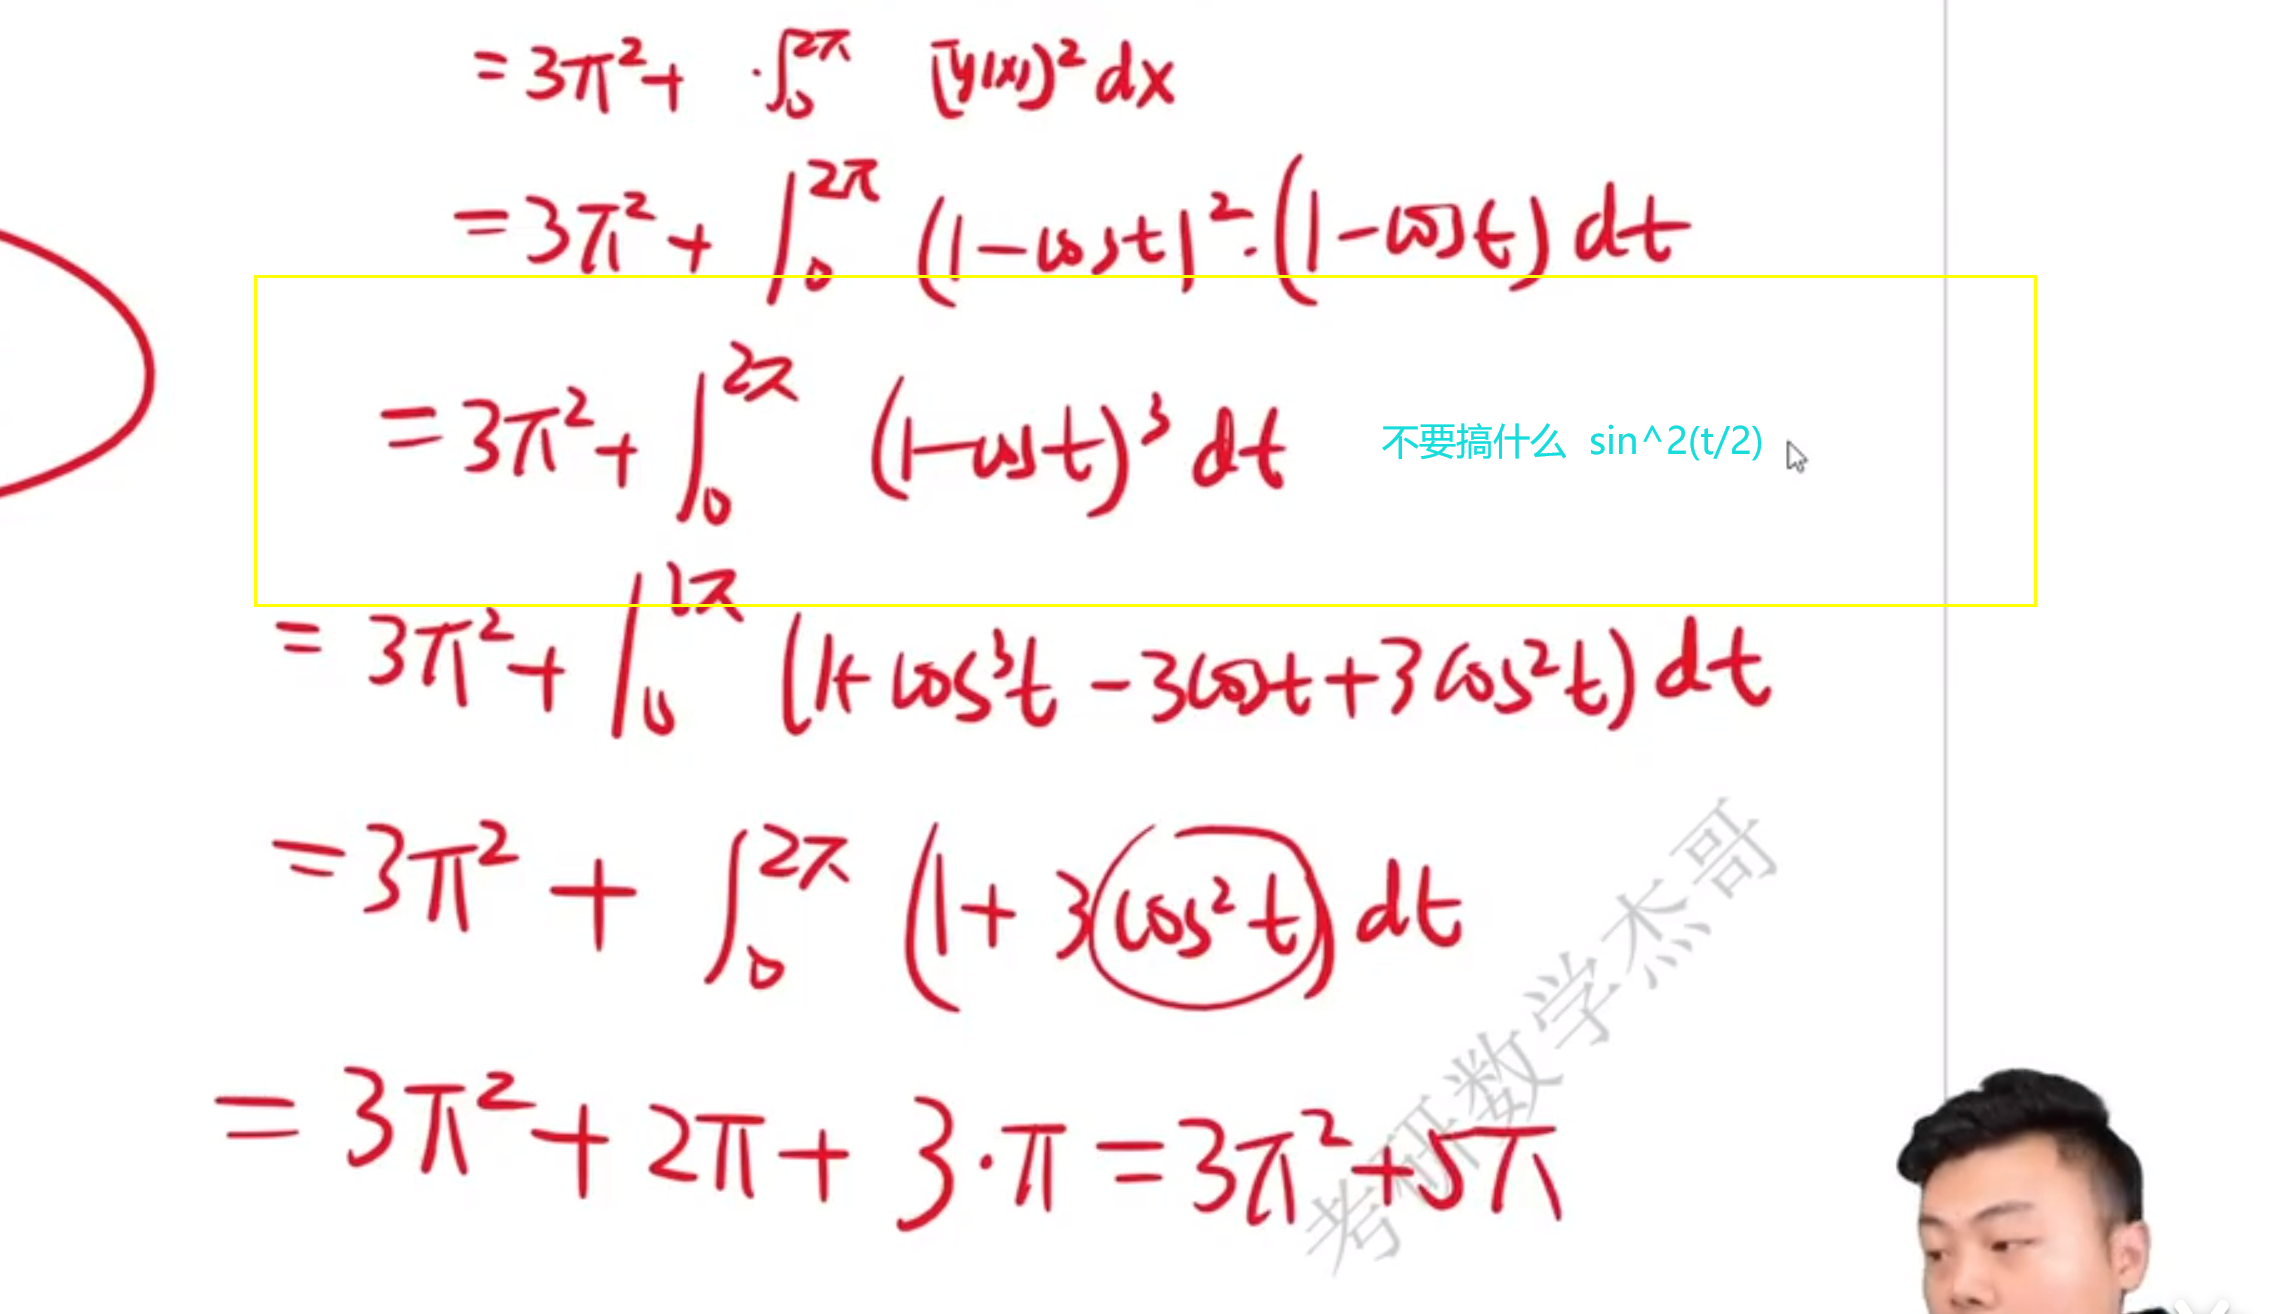 = 3π² + ·∫₀^{2π} (y(x))² dx
= 3π² + ∫₀^{2π} (1-cost)²·(1-cost) dt
= 3π² + ∫₀^{2π} (1-cost)³ dt 不要搞什么 sin^2(t/2)
= 3π² + ∫₀^{2π} (1+cos³t -3cost+3cos²t) dt
= 3π² + ∫₀^{2π} (1+3cos²t) dt
= 3π² + 2π + 3·π = 3π² + 5π
考研数学杰哥